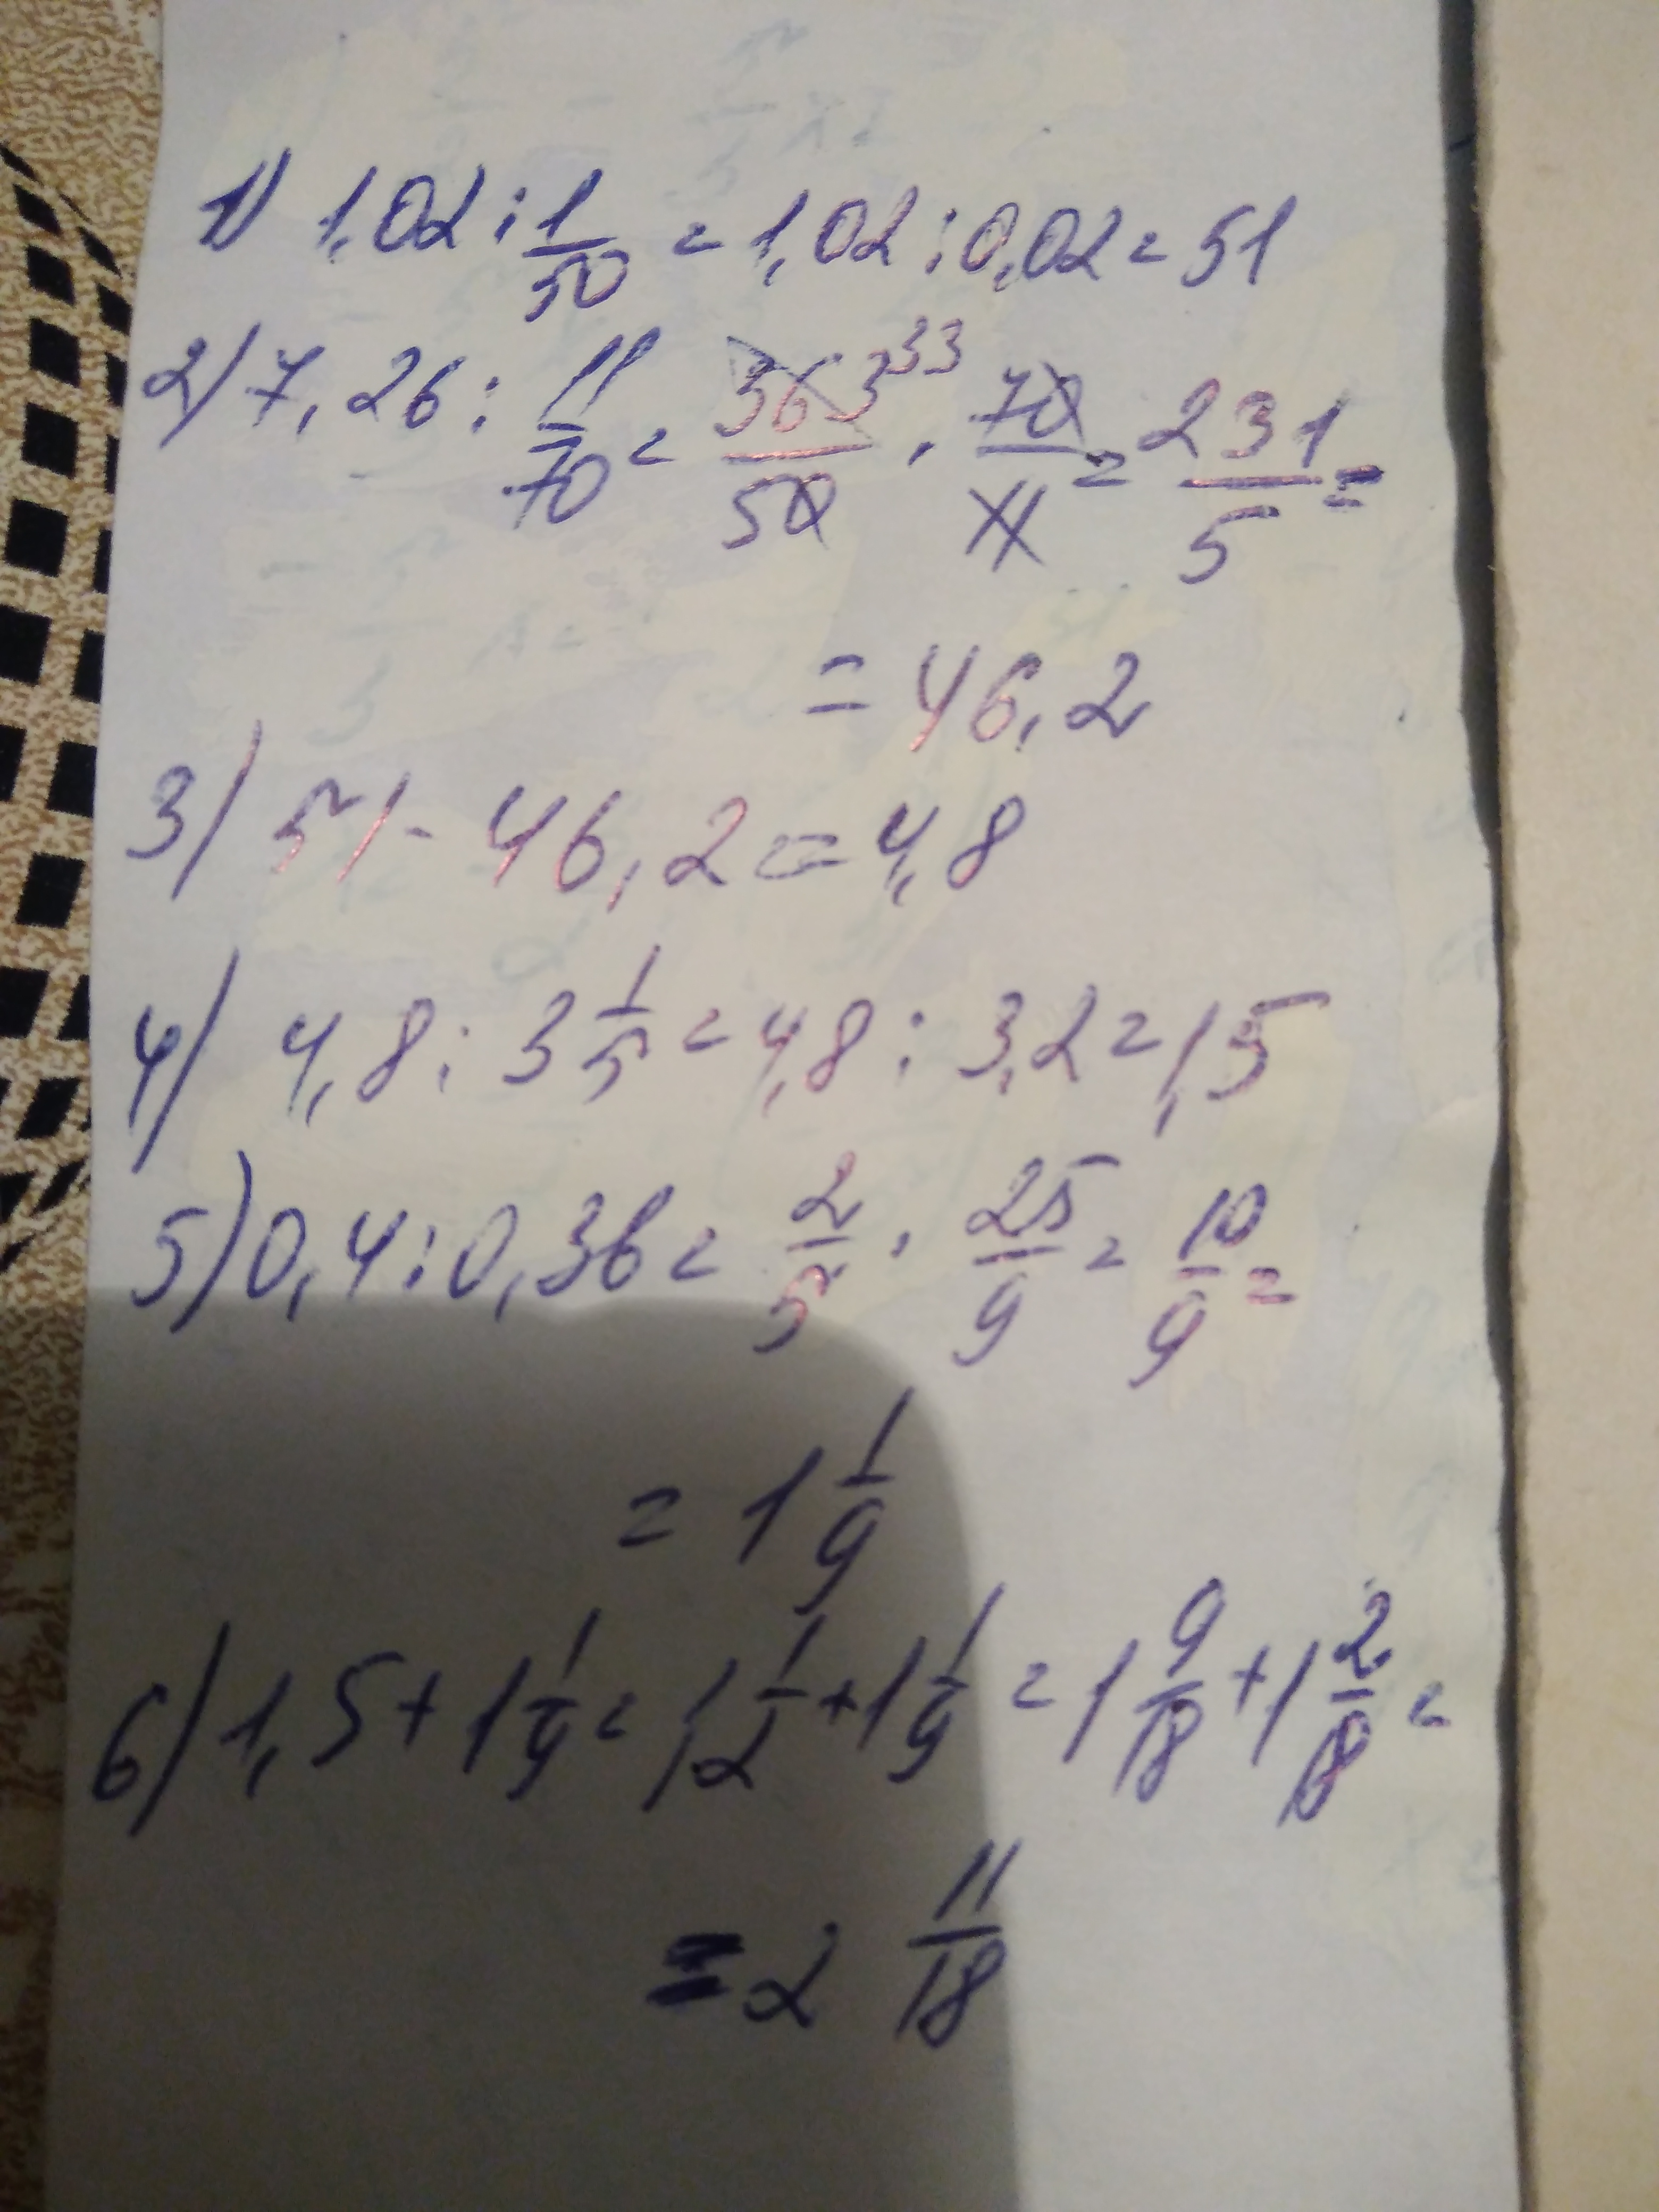 1) 1,02 : 1/50 = 1,02 : 0,02 = 51
2) 7,26 : 11/70 = 363/50 33 · 70/11 = 231/5 =
= 46,2
3) 51 - 46,2 = 4,8
4) 4,8 : 3 1/5 = 4,8 : 3,2 = 1,5
5) 0,4 : 0,36 = 2/5 · 25/9 = 10/9 =
= 1 1/9
6) 1,5 + 1 1/9 = 1 1/2 + 1 1/9 = 1 9/18 + 1 2/18 =
= 2 11/18